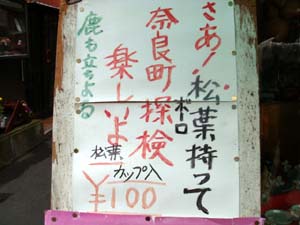 さあ！松葉持って
ボロ
奈良町探検
楽しいよ
鹿も立ちよる
松葉
カップ入
¥100